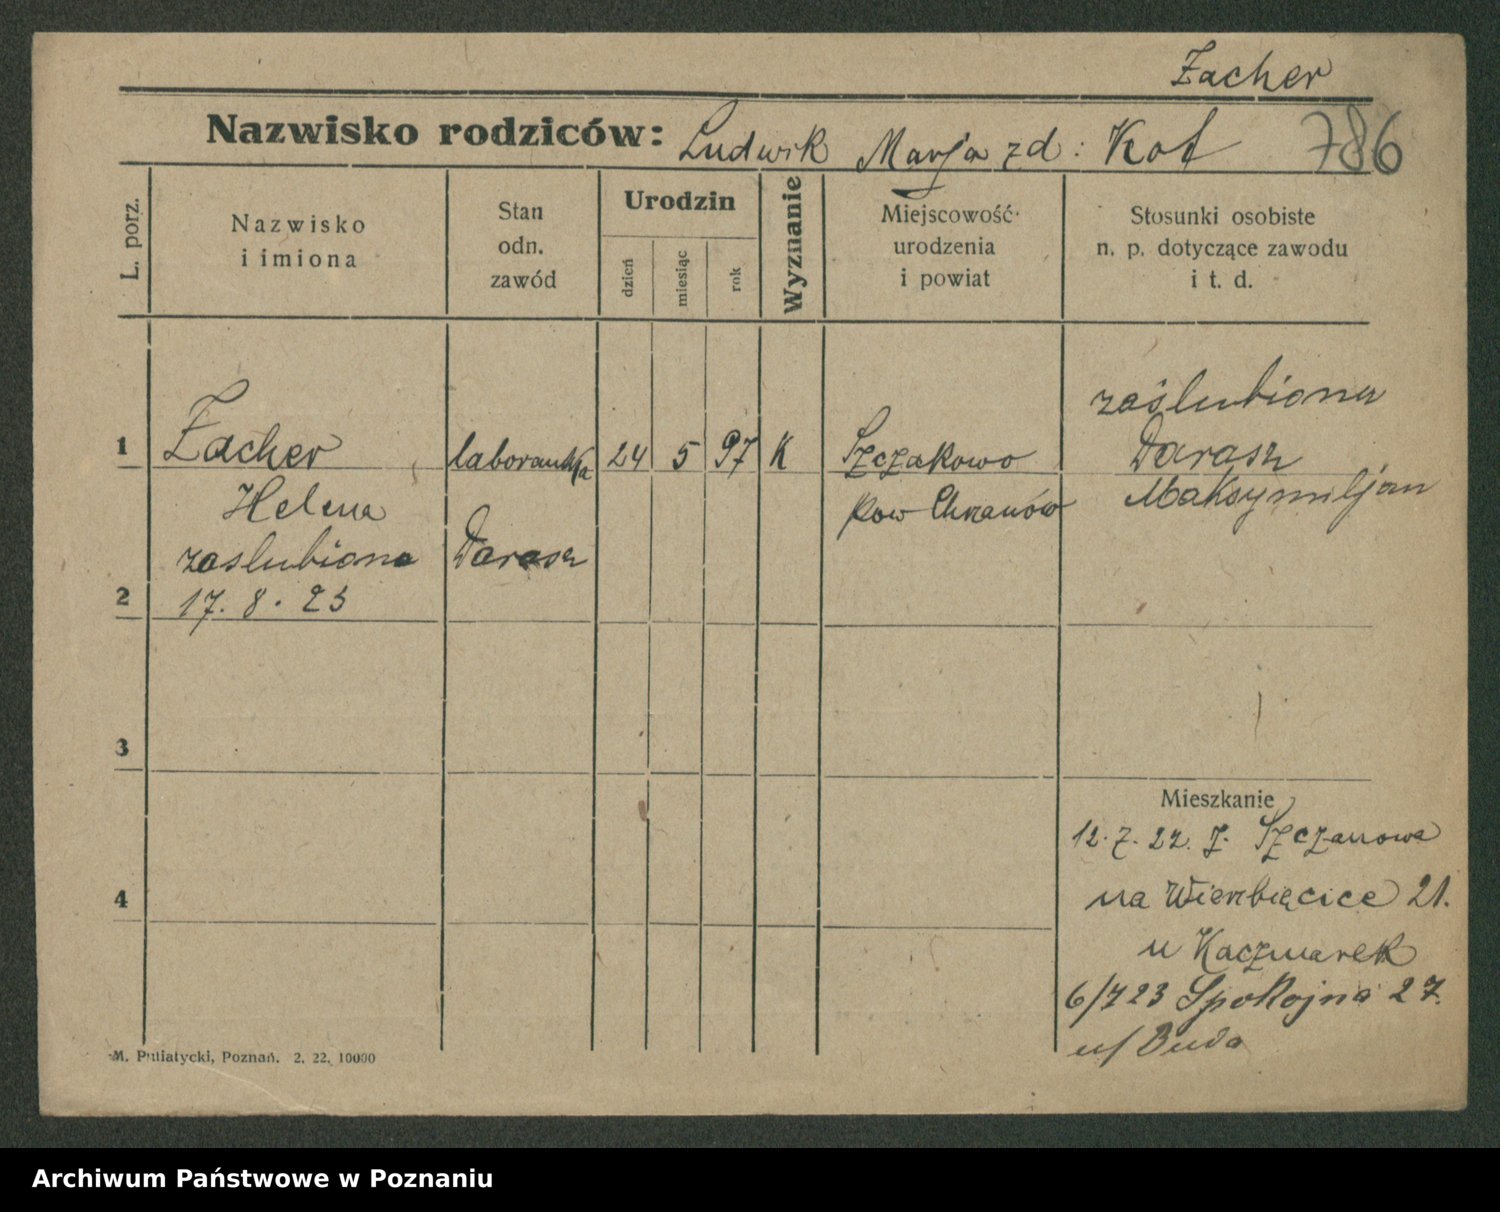 Zacher
Nazwisko rodziców: Ludwik Marja zd: Kot 786
L. porz.
Nazwisko
i imiona
Stan
odn.
zawód
Urodzin
dzień
miesiąc
rok
Wyznanie
Miejscowość
urodzenia
i powiat
Stosunki osobiste
n. p. dotyczące zawodu
i t. d.
1 Zacher laborantka 24 5 97 K Szczakowo
Helena pow Chrzanów
zaslubiona Darasz
2 17. 8. 23
zaślubiona
Darasz
Maksymiljan
3
4
Mieszkanie
12. 7. 22. z. Szczanowa
na Wierzbięcice 21.
u Kaczmarek
6/7 23 Spokojna 27.
u/ Buda
M. Putiatycki, Poznań. 2. 22. 10000
Archiwum Państwowe w Poznaniu